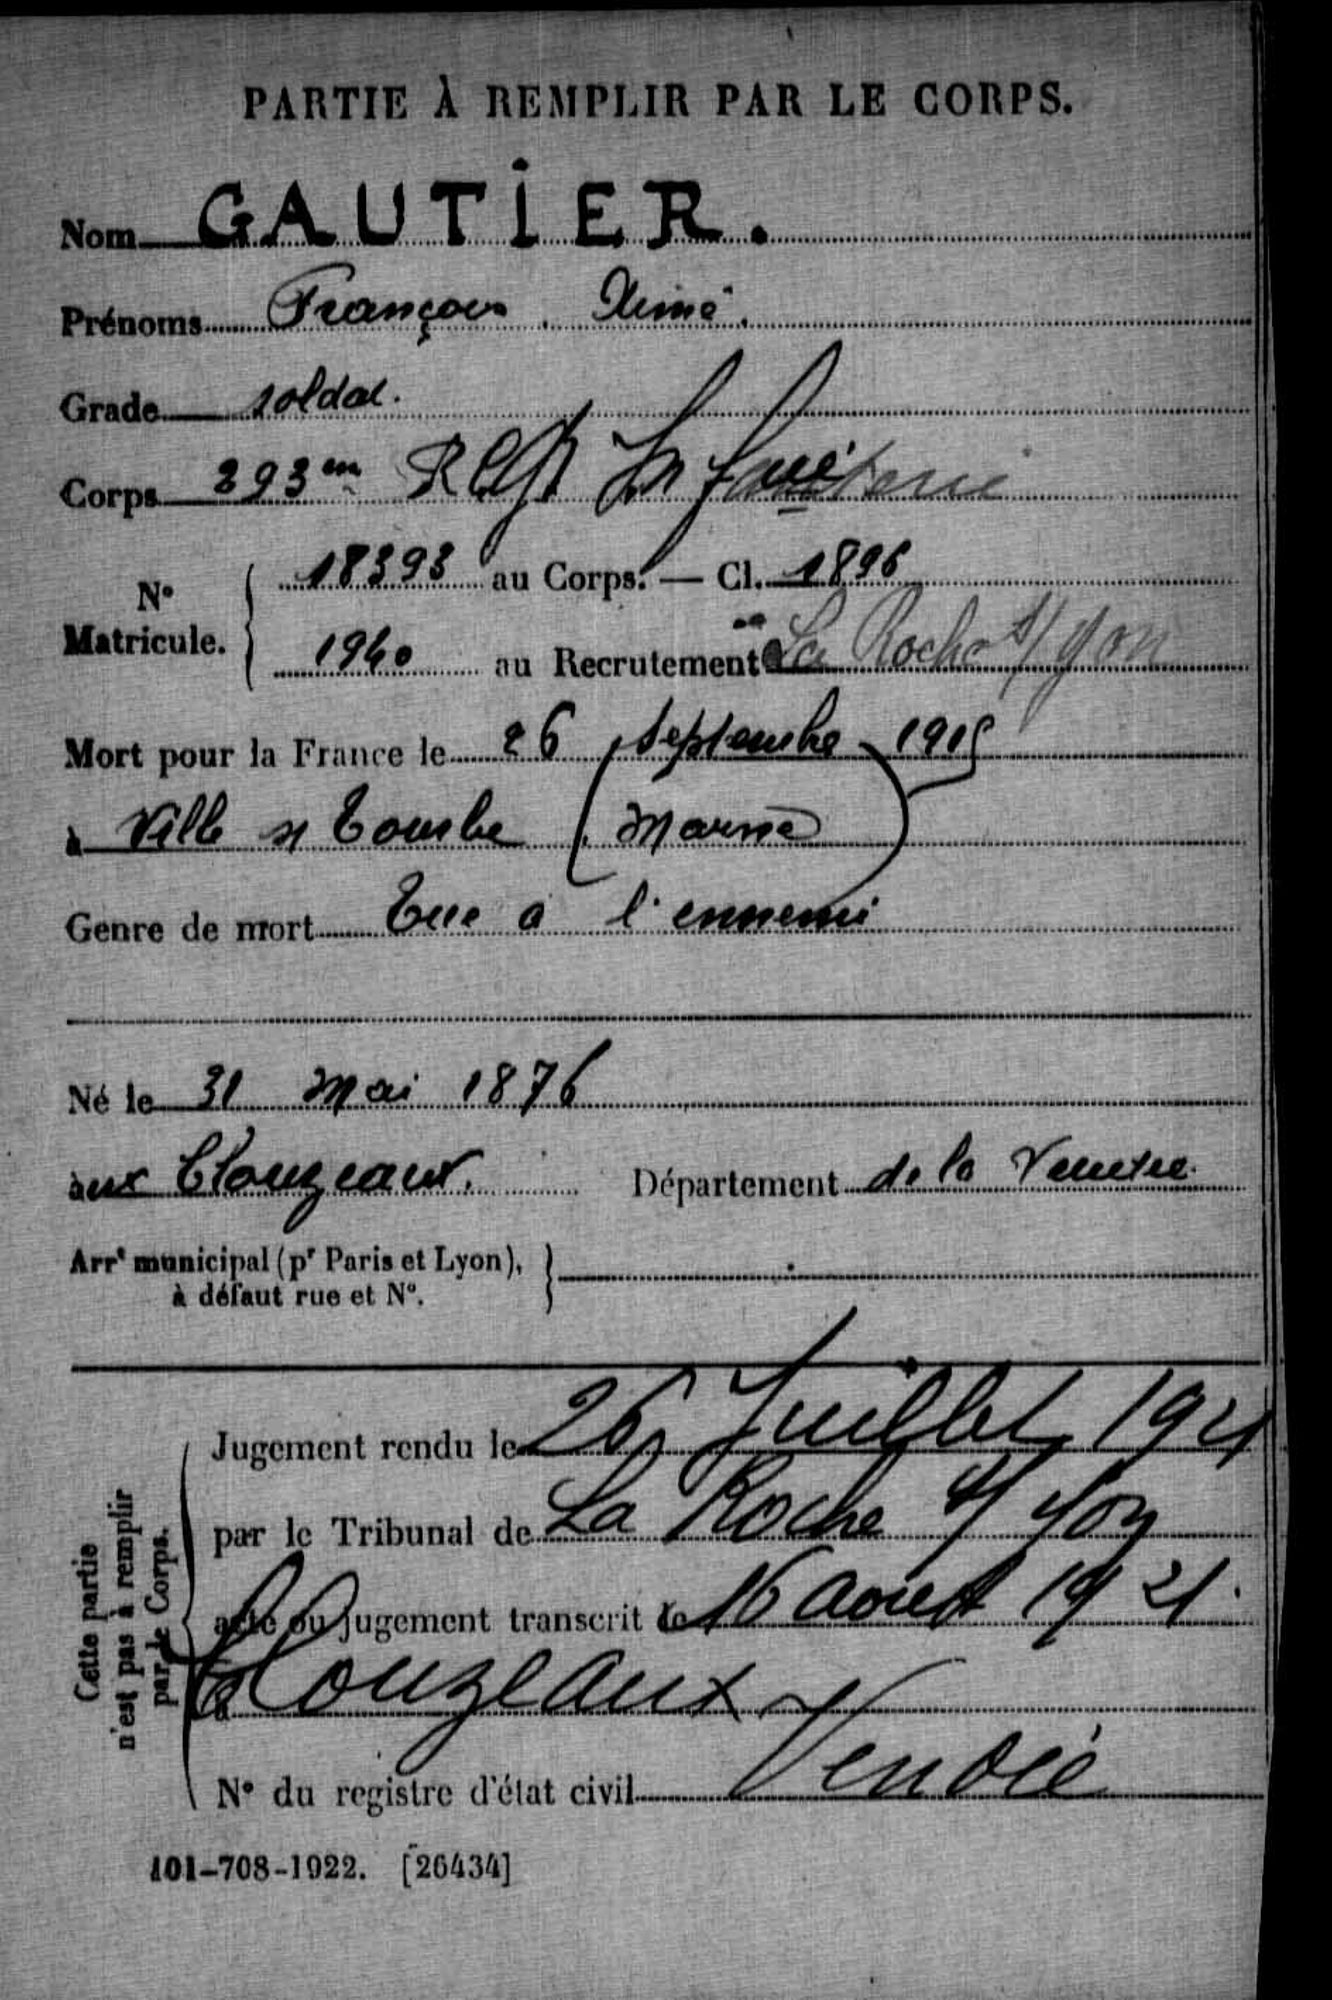 PARTIE À REMPLIR PAR LE CORPS.
Nom GAUTIER.
Prénoms François Aimé.
Grade soldat.
Corps 293em Regt Infanterie
N° Matricule. 18393 au Corps. — Cl. 1896
1940 au Recrutement La Roche s/yon
Mort pour la France le 26 septembre 1915
à Ville s/ Tourbe (Marne)
Genre de mort Tué à l'ennemi
Né le 31 Mai 1876
aux Clouzeaux. Département de la Vendée.
Arrt municipal (pr Paris et Lyon),
à défaut rue et N°.
Cette partie n'est pas à remplir par le Corps.
Jugement rendu le 26 Juillet 1921
par le Tribunal de La Roche s/ Yon
acte ou jugement transcrit le 16 Aout 1921.
à Clouzeaux Vendée
N° du registre d'état civil
101-708-1922. [26434]